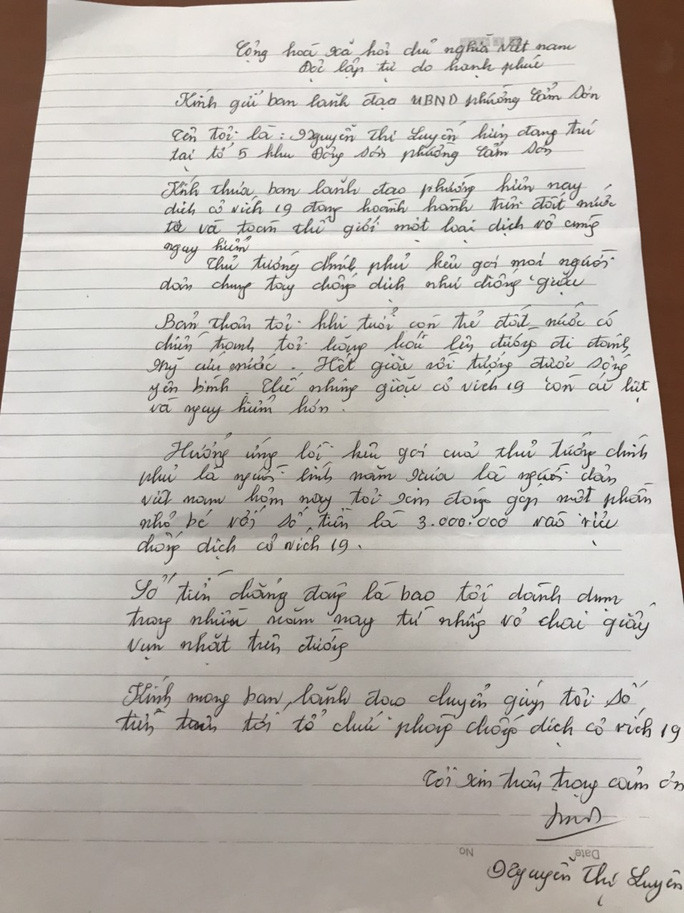 Cộng hoá xã hội chủ nghĩa Việt nam
Độc lập tự do hạnh phúc
Kính gửi ban lãnh đạo UBND phường Cẩm Sơn
Tên tôi là: Nguyễn Thị Luyến hiện đang trú
tại tổ 5 khu Đông Sơn phường Cẩm Sơn
Kính thưa ban lãnh đạo phường hiện nay
dịch cô vich 19 đang hoành hành trên đất nước
ta và toàn thế giới một loại dịch vô cùng
nguy hiểm
Thủ tướng chính phủ kêu gọi mọi người
dân chung tay chống dịch như chống giặc
Bản thân tôi khi tuổi còn trẻ đất nước có
chiến tranh tôi hăng hái lên đường đi đánh
Mỹ cứu nước. Hết giặc rồi tưởng được sống
yên bình thế nhưng giặc cô vich 19 còn ác liệt
và nguy hiểm hơn.
Hưởng ứng lời kêu gọi của thủ tướng chính
phủ là người lính năm xưa là người dân
việt nam hôm nay tôi xin đóng góp một phần
nhỏ bé với số tiền là 3.000.000 vào việc
chống dịch cô vich 19.
Số tiền chẳng đáng là bao tôi dành dụm
trong nhiều năm nay từ những vỏ chai giấy
vụn nhặt trên đường
Kính mong ban lãnh đạo chuyển giúp tôi số
tiền tới tổ chức phòng chống dịch cô vich 19
Tôi xin trân trọng cảm ơn
No
Date
Nguyễn Thị Luyến